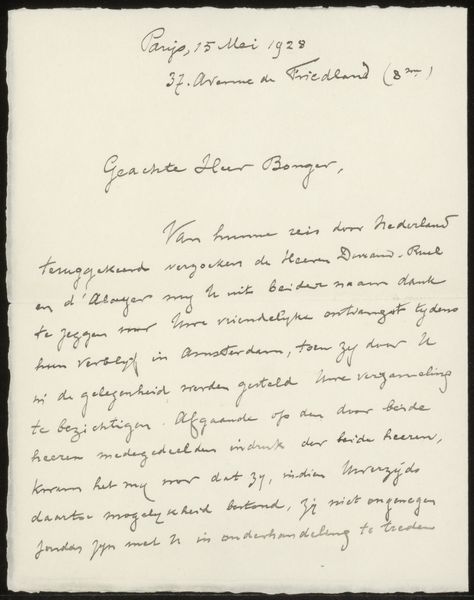 Parijs, 15 Mei 1928
37. Avenue de Friedland (8me)
Geachte Heer Bonger,
Van hunne reis door Nederland
teruggekeerd verzoeken de Heeren Durand-Ruel
en d'Alayer mij U uit beider naam dank
te zeggen voor Uwe vriendelyke ontvangst tydens
hun verblyf in Amsterdam, toen zy door U
in de gelegenheid werden gesteld Uwe verzameling
te bezichtigen. Afgaande op den door beide
heeren medegedeelden indruk der beide heeren,
kwam het my voor dat zy, indien Uwerzyds
daartoe mogelykheid bestond, zy niet ongenegen
zouden zyn met U in onderhandeling te treden